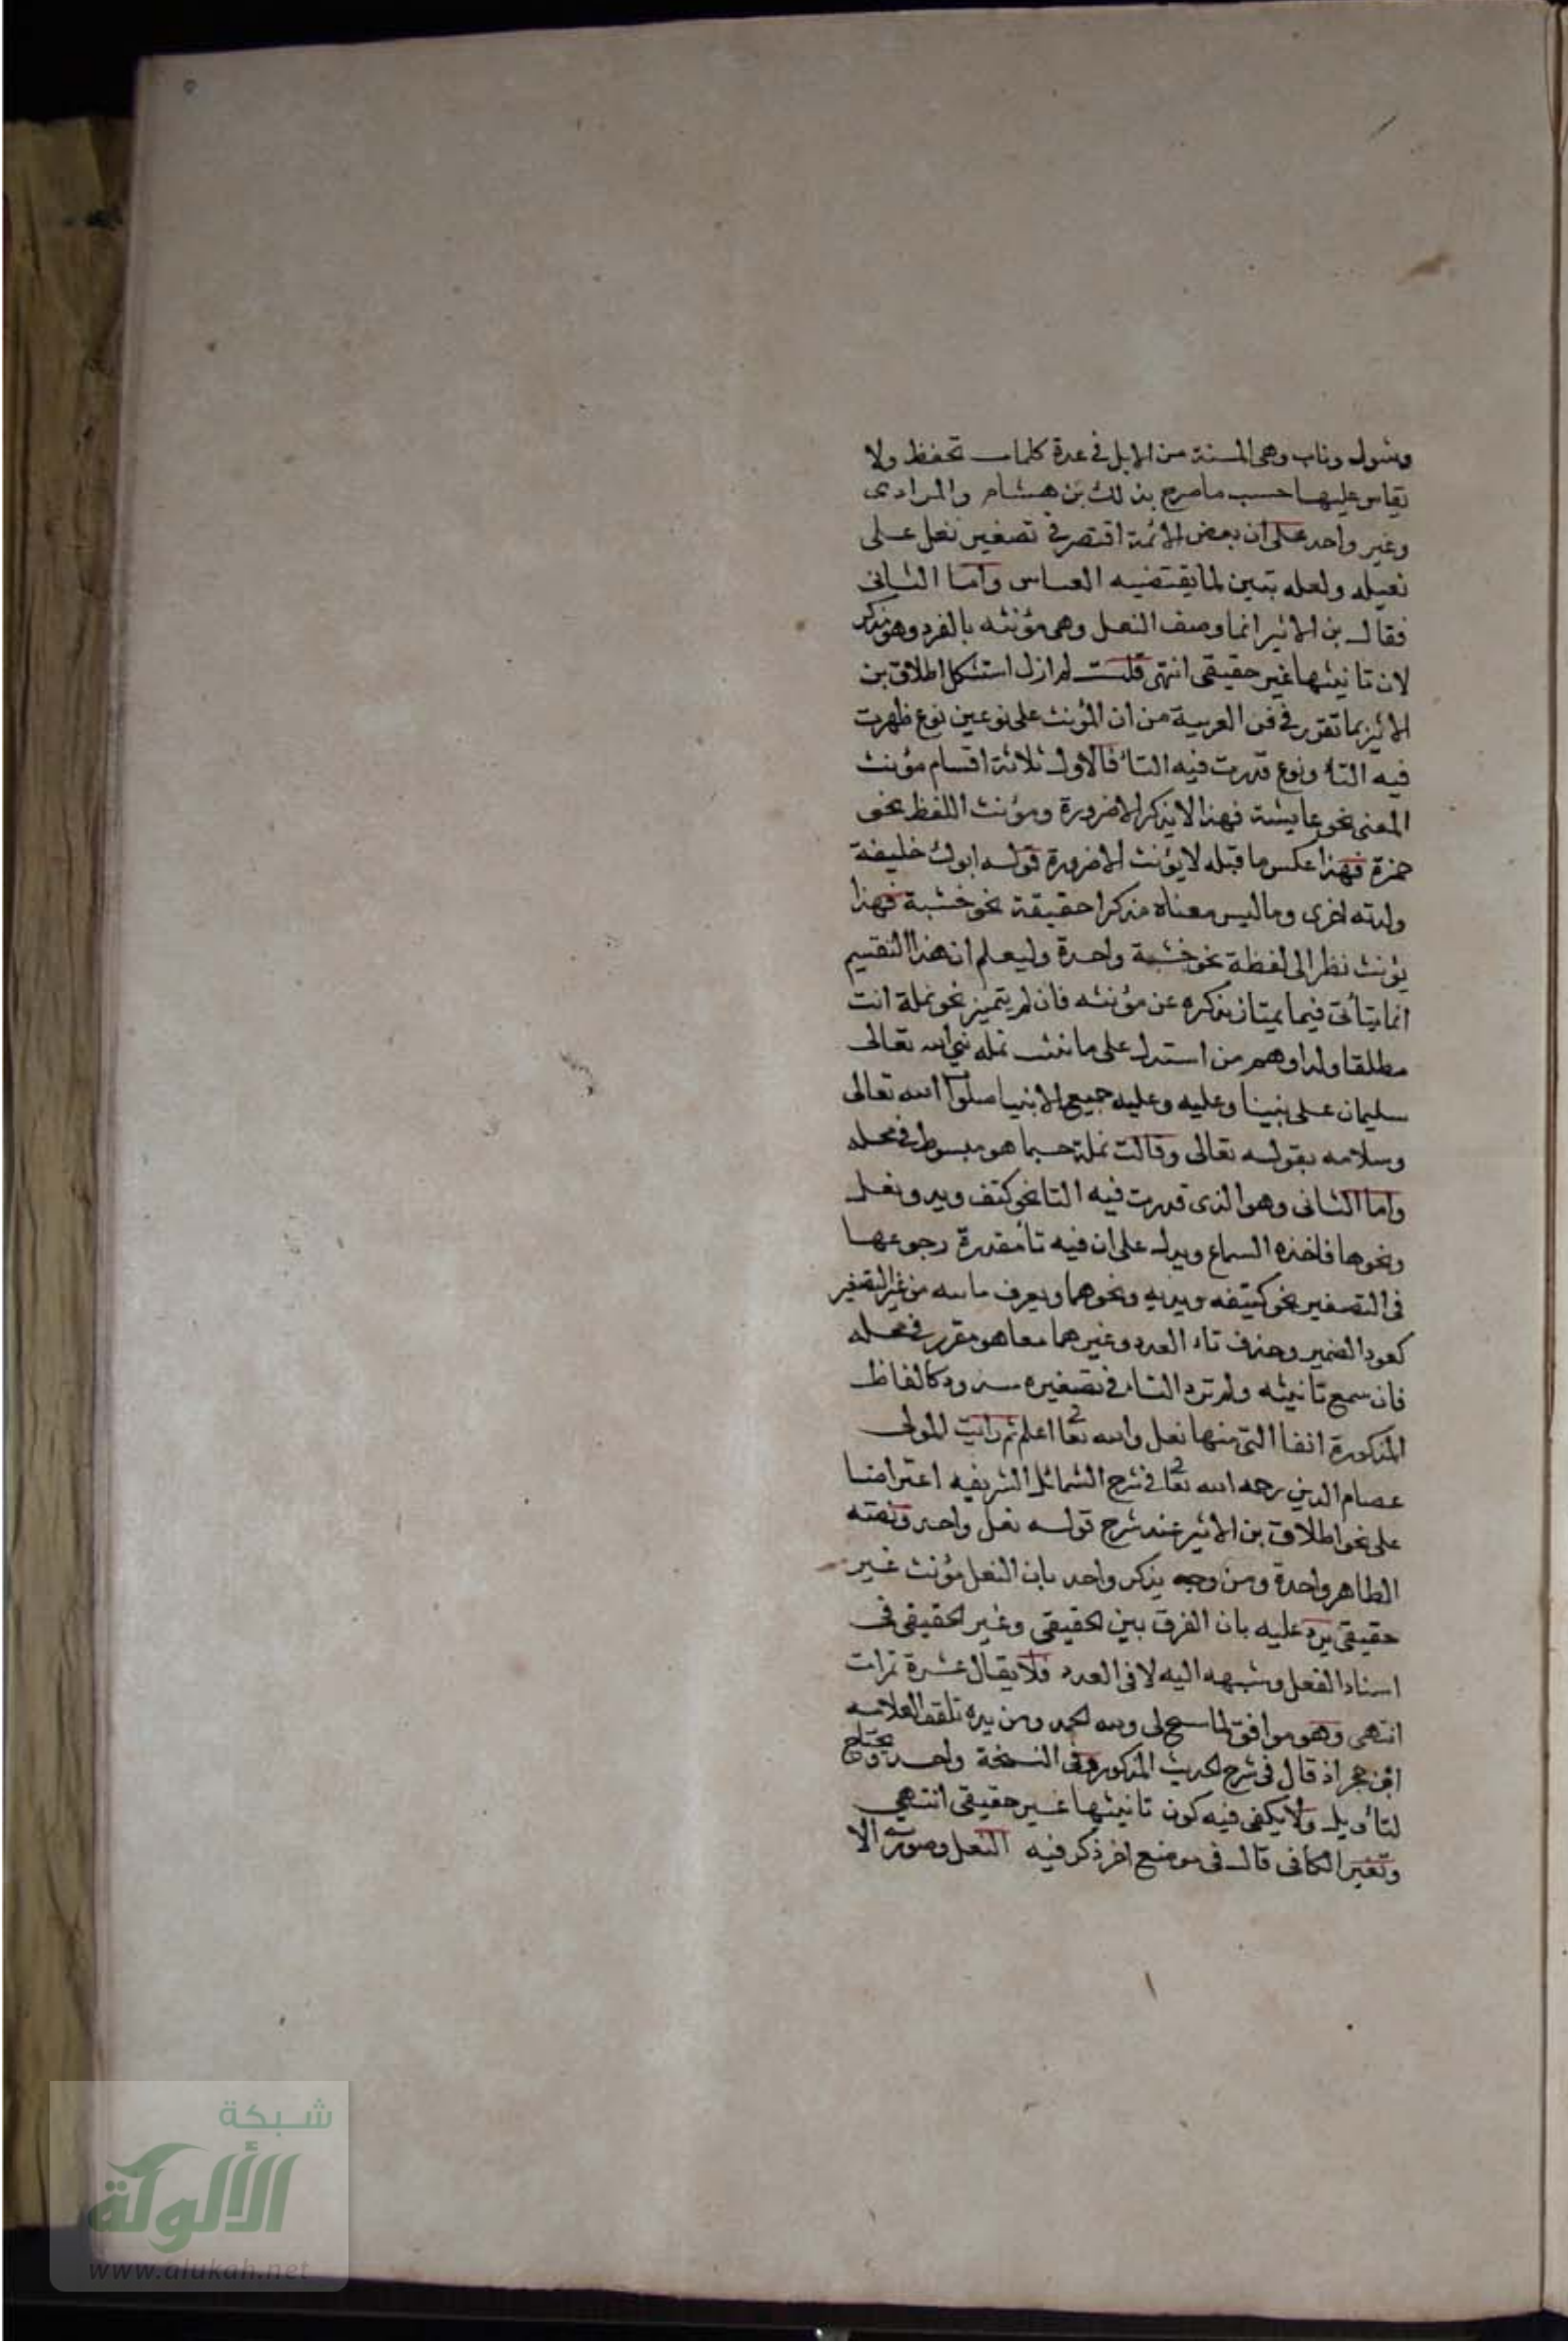 وشول وناب وهى المسنة من الابل فى عدة كلمات تحفظ ولا
يقاس عليها حسب ما صرح بذلك بن هشام والمرادى
وغير واحد على ان بعض الائمة اقتصر فى تصغير نعل على
نعيله ولعله تبين لما يقتضيه القياس واما الثانى
فقال بن الاثير انما وصف النعل وهى مؤنثه بالفرد وهو مذكر
لان تانيثها غير حقيقى انتهى قلت لم ازل استشكل اطلاق بن
الاثير بما تقرر فى فن العربية من ان المؤنث على نوعين نوع ظهرت
فيه التاء ونوع قدرت فيه التاء فالاول ثلاثة اقسام مؤنث
المعنى نحو عايشة فهذا لا يذكر الا ضرورة ومؤنث اللفظ نحو
حمزة فهذا عكس ما قبله لا يؤنث الا ضرورة قوله ابوك خليفة
ولدته اخرى وما ليس معناه مذكرا حقيقة نحو خشبة فهذا
يؤنث نظرا الى لفظة نحو خشبة واحدة وليعلم ان هذا التقسيم
انما يتأتى فيما يمتاز مذكره عن مؤنثه فان لم يتميز نحو نملة انث
مطلقا ولذا وهم من استدل على تانيث نملة نبي الله تعالى
سليمان على نبينا وعليه وعليه جميع الانبيا صلوا الله تعالى
وسلامه بقوله تعالى وقالت نملة حسبما هو مبسوط فى محله
واما الثانى وهو الذى قدرت فيه التا نحو كتف ويد ونعل
ونحوها فاخذه السماع ويدل على ان فيه تأ مقدرة رجوعها
فى التصغير نحو كتيفه ويديه ونحوهما ويعرف من غير التصغير
كعود الضمير وحذف تاء العدد وغيرهما مما هو مقرر فى محله
فان سمع تانيثه ولم ترد التاء فى تصغيره كالفاظ
المذكورة انفا التى منها نعل والله تعا اعلم ثم رايت المولى
عصام الدين رحمه الله تعا فى شرح الشمائل الشريفه اعتراضا
على نحو اطلاق بن الاثير عند شرح قوله نعل واحد ونصته
الظاهر واحدة ومن وجه يذكر واحد بان النعل مؤنث غير
حقيقى يرد عليه بان الفرق بين الحقيقى وغير الحقيقى فى
اسناد الفعل وشبهه اليه لا فى العدد فلا يقال عشرة تمرات
انتهى وهو موافق لما سنح لى ولله الحمد ومن يده تلقف العلامه
ابن حجر اذ قال فى شرح الحديث المذكور وفى النسخة واحد ويحتاج
لتأويل ولا يكفى فيه كون تانيثها غير حقيقى انتهى
قال فى موضع اخر ذكر فيه النعل وصورته الا
شبكة
الألوكة
www.alukah.net